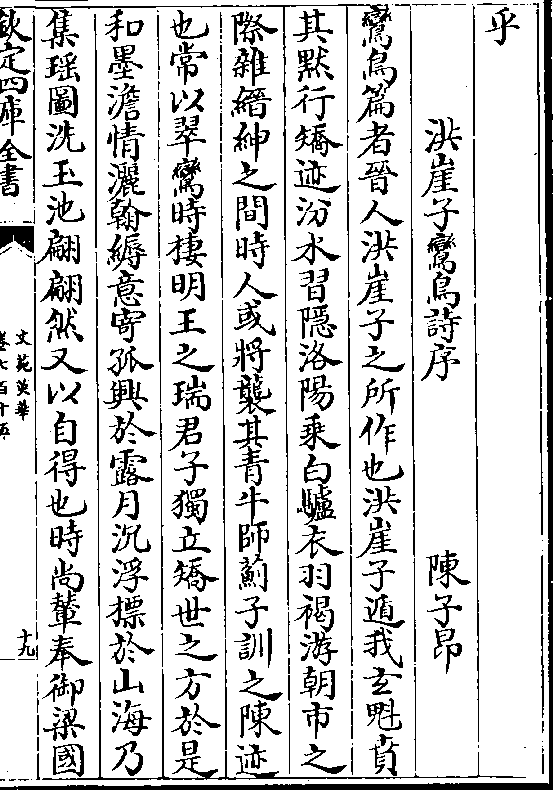 乎
洪崖子鸞鳥詩序 陳子昂
鸞鳥篇者晉人洪崖子之所作也洪崖子遁我玄魁賁
其黙行矯迹汾水習隠洛陽乗白驢衣羽褐游朝市之
際雜縉紳之間時人或將襲其青牛師薊子訓之陳迹
也常以翠鸞時棲明王之瑞君子獨立矯世之方於是
和墨澹情灑翰縟意寄孤興於露月沉浮標於山海乃
集瑶圖洗玉池翩翩然又以自得也時尚輦奉御梁國
欽定四庫全書
文苑英華
卷七百十五
十九